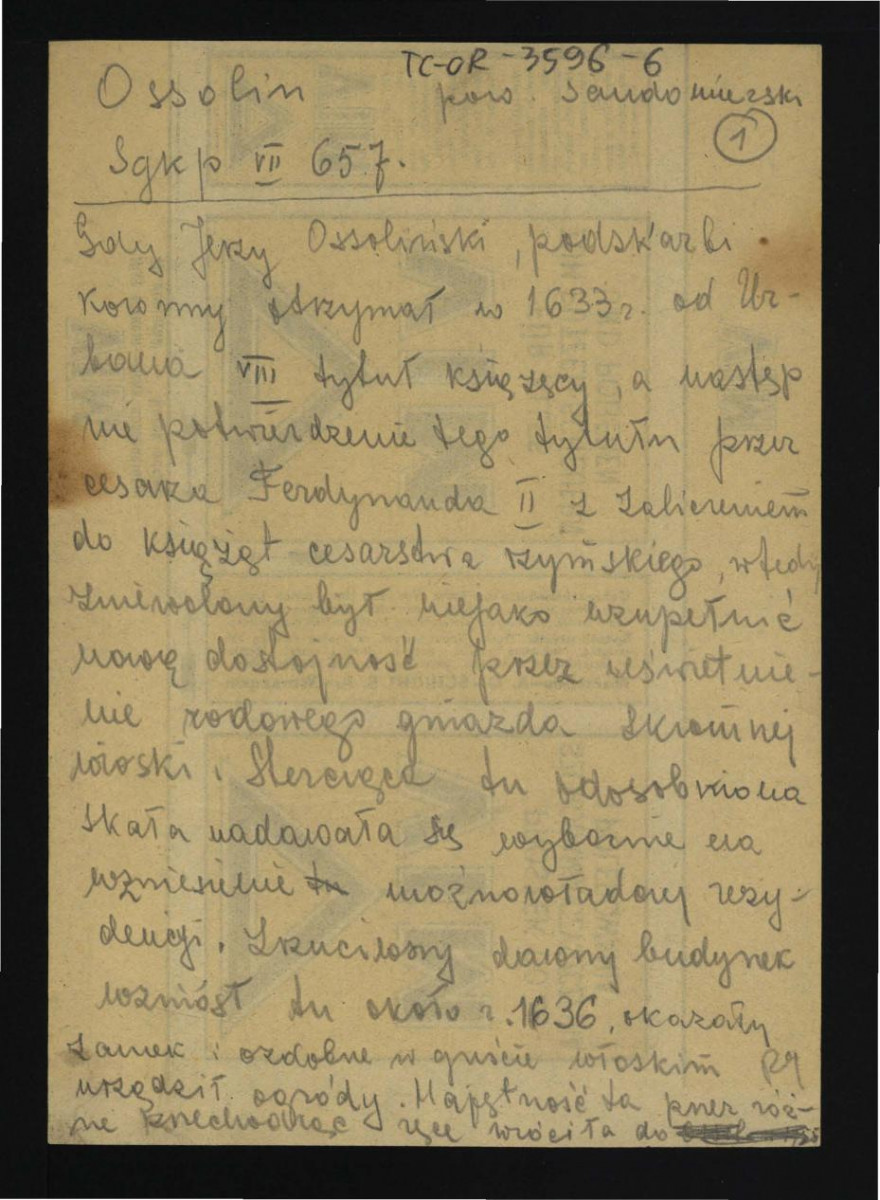 TC-OR-3596-6
Ossolin pow. Sandomierski
1
Sgkp VII 657.
Gdy Jerzy Ossoliński, podskarbi
koronny otrzymał w 1633 r. od Ur-
bana VIII tytuł książęcy, a następ
nie potwierdzenie tego tytułu przez
cesarza Ferdynanda II z zaliczeniem
do książąt cesarstwa rzymskiego, wtedy
zniewolony był niejako uzupełnić
nową dostojność przez uświetnie-
nie rodowego gniazda skromnej
wioski. Stercząca tu odosobniona
skała nadawała się wybornie na
wzniesienie tu możnowładczej rezy-
dencji. Zrzuciwszy dawny budynek
wzniósł tu około r. 1636, okazały
zamek i ozdobne w guście włoskim
urządził ogrody. Majętność ta przez róż-
ne przechodząc ręce wróciła do